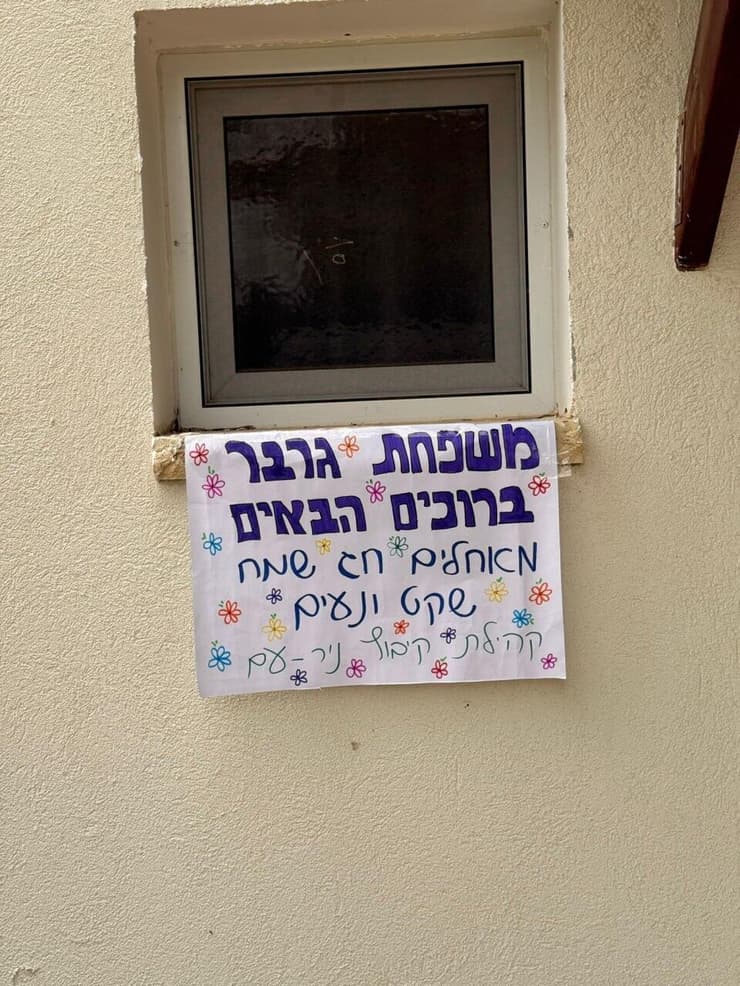 משפחת גרבר
ברוכים הבאים
מאחלים חג שמח
שקט ונעים
קהילת קיבוץ ניר-עם